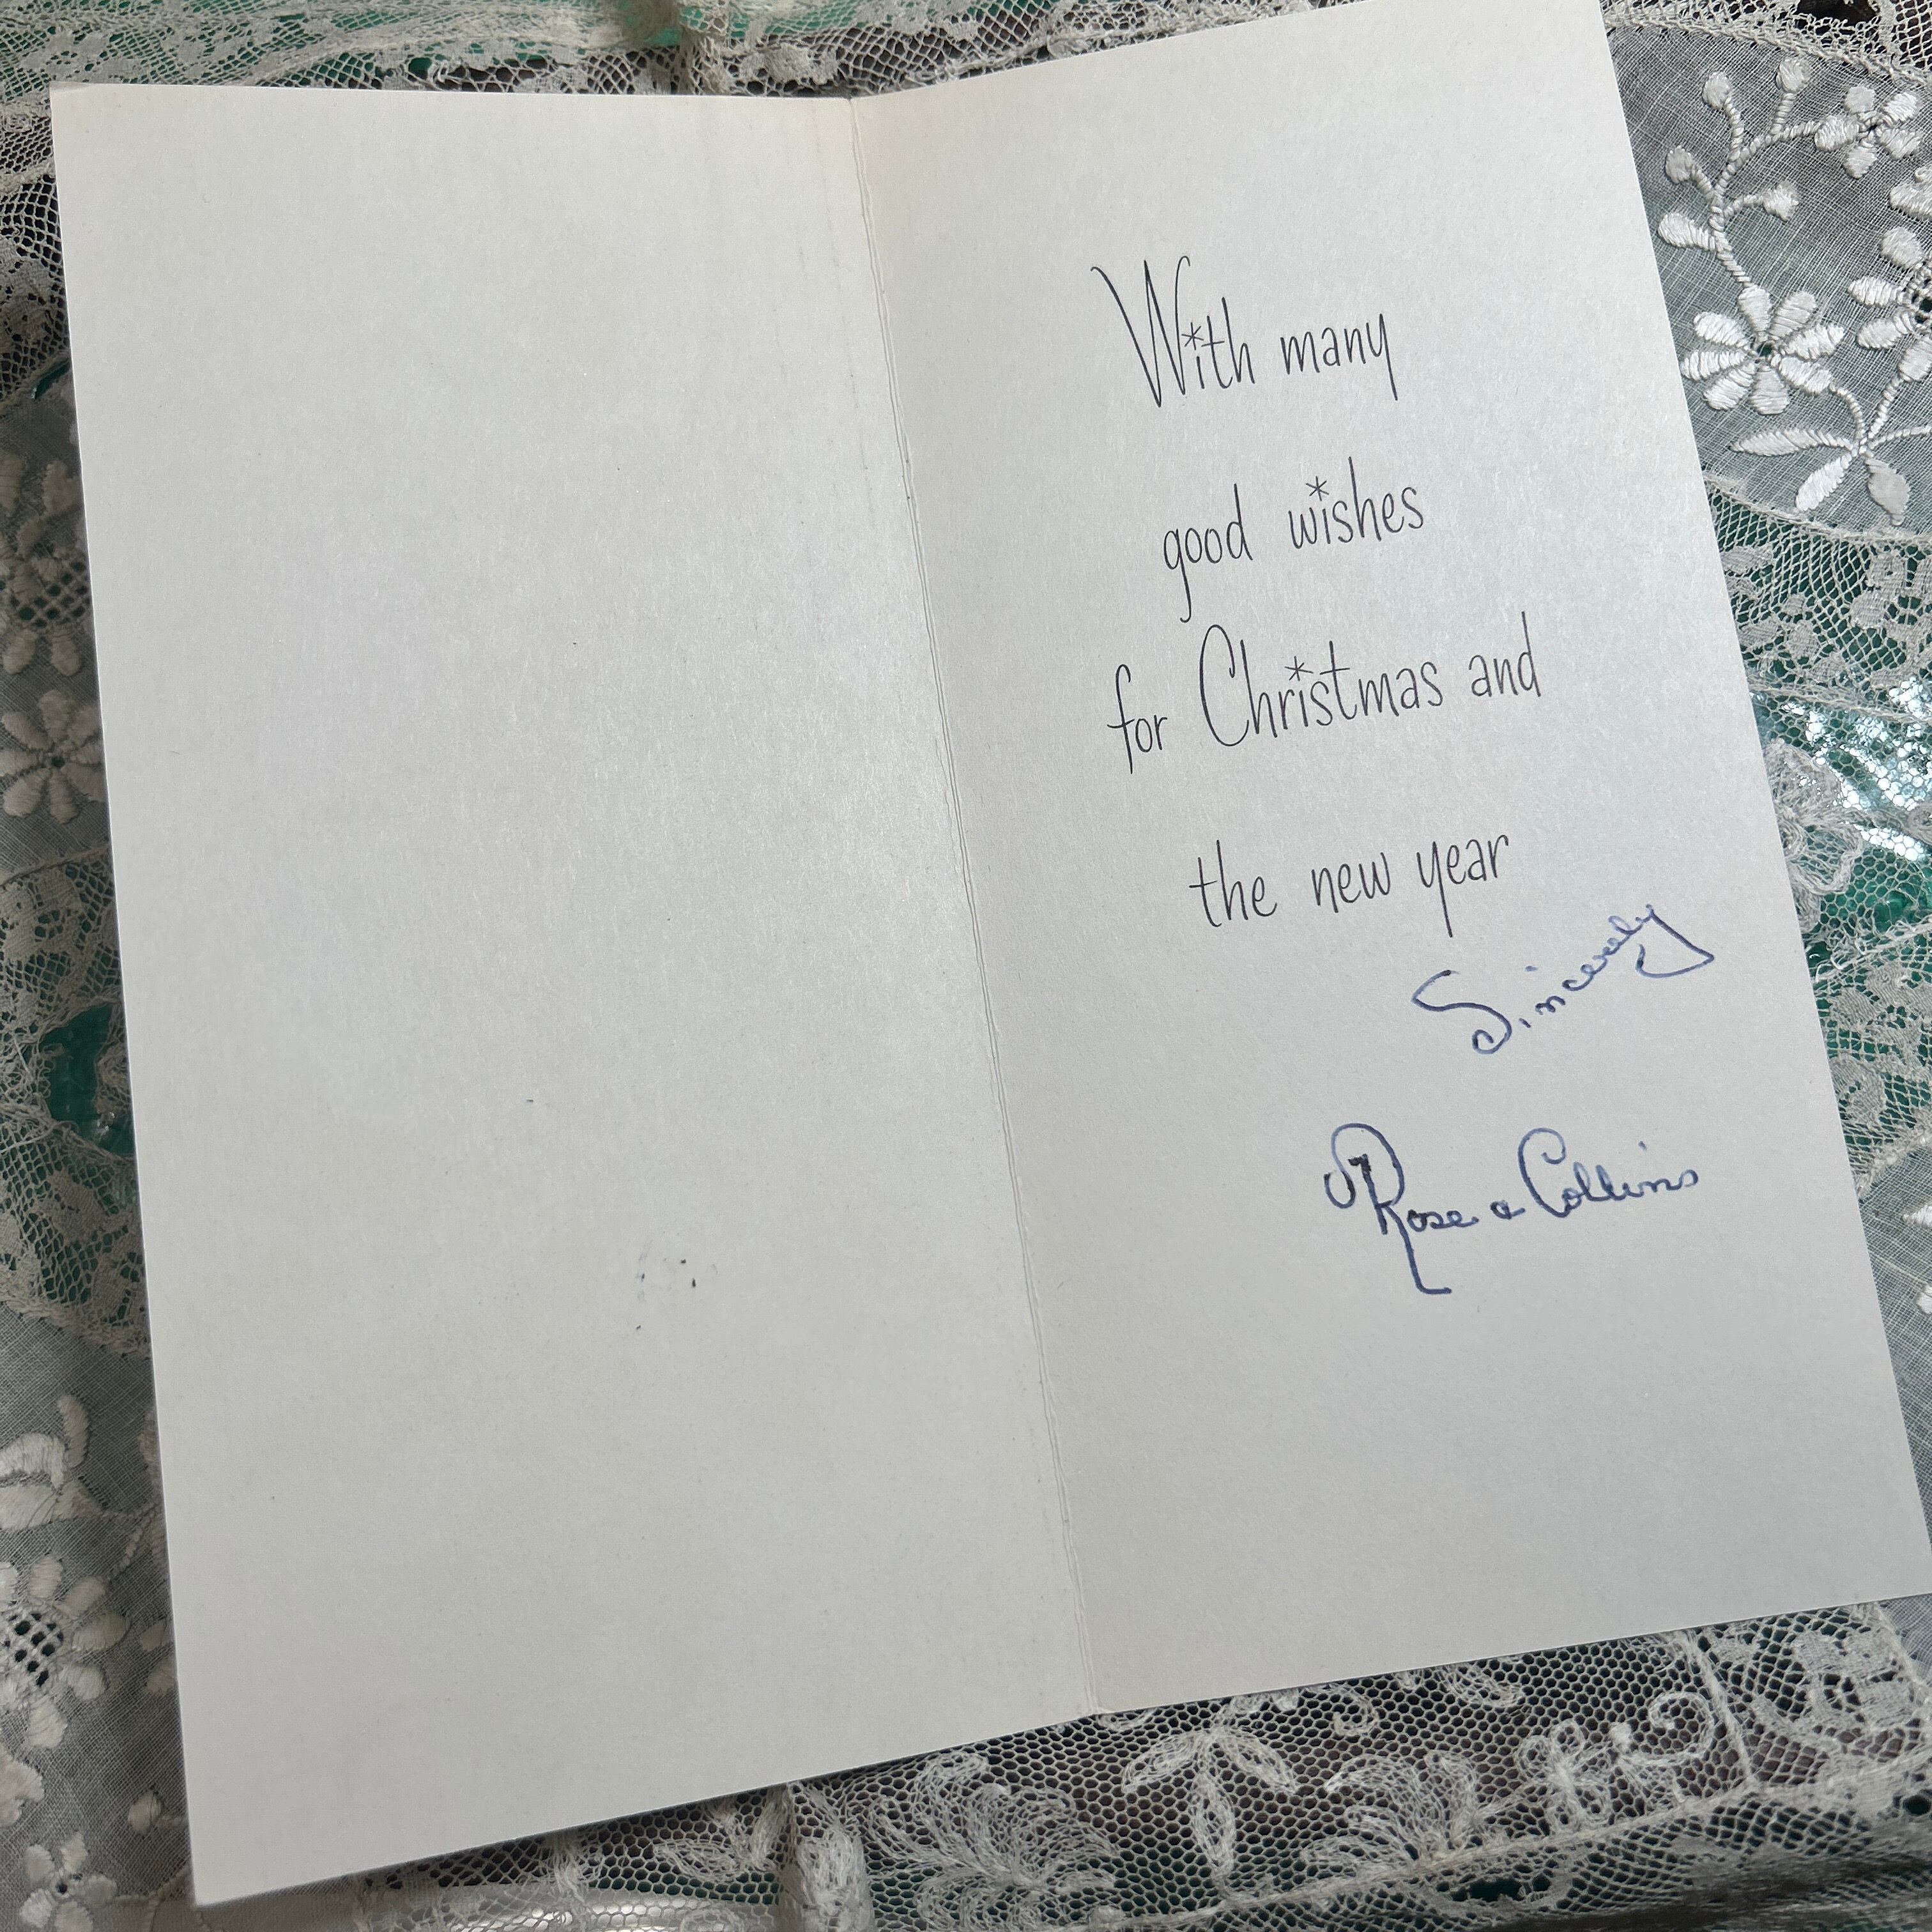 With many
good wishes
for Christmas and
the new year
Sincerely
Rose & Collins